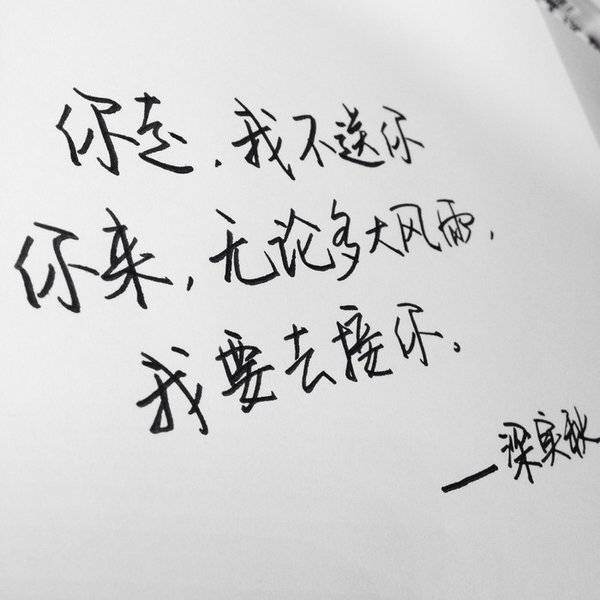 你走，我不送你
你来，无论多大风雨，
我要去接你。
—深实秋